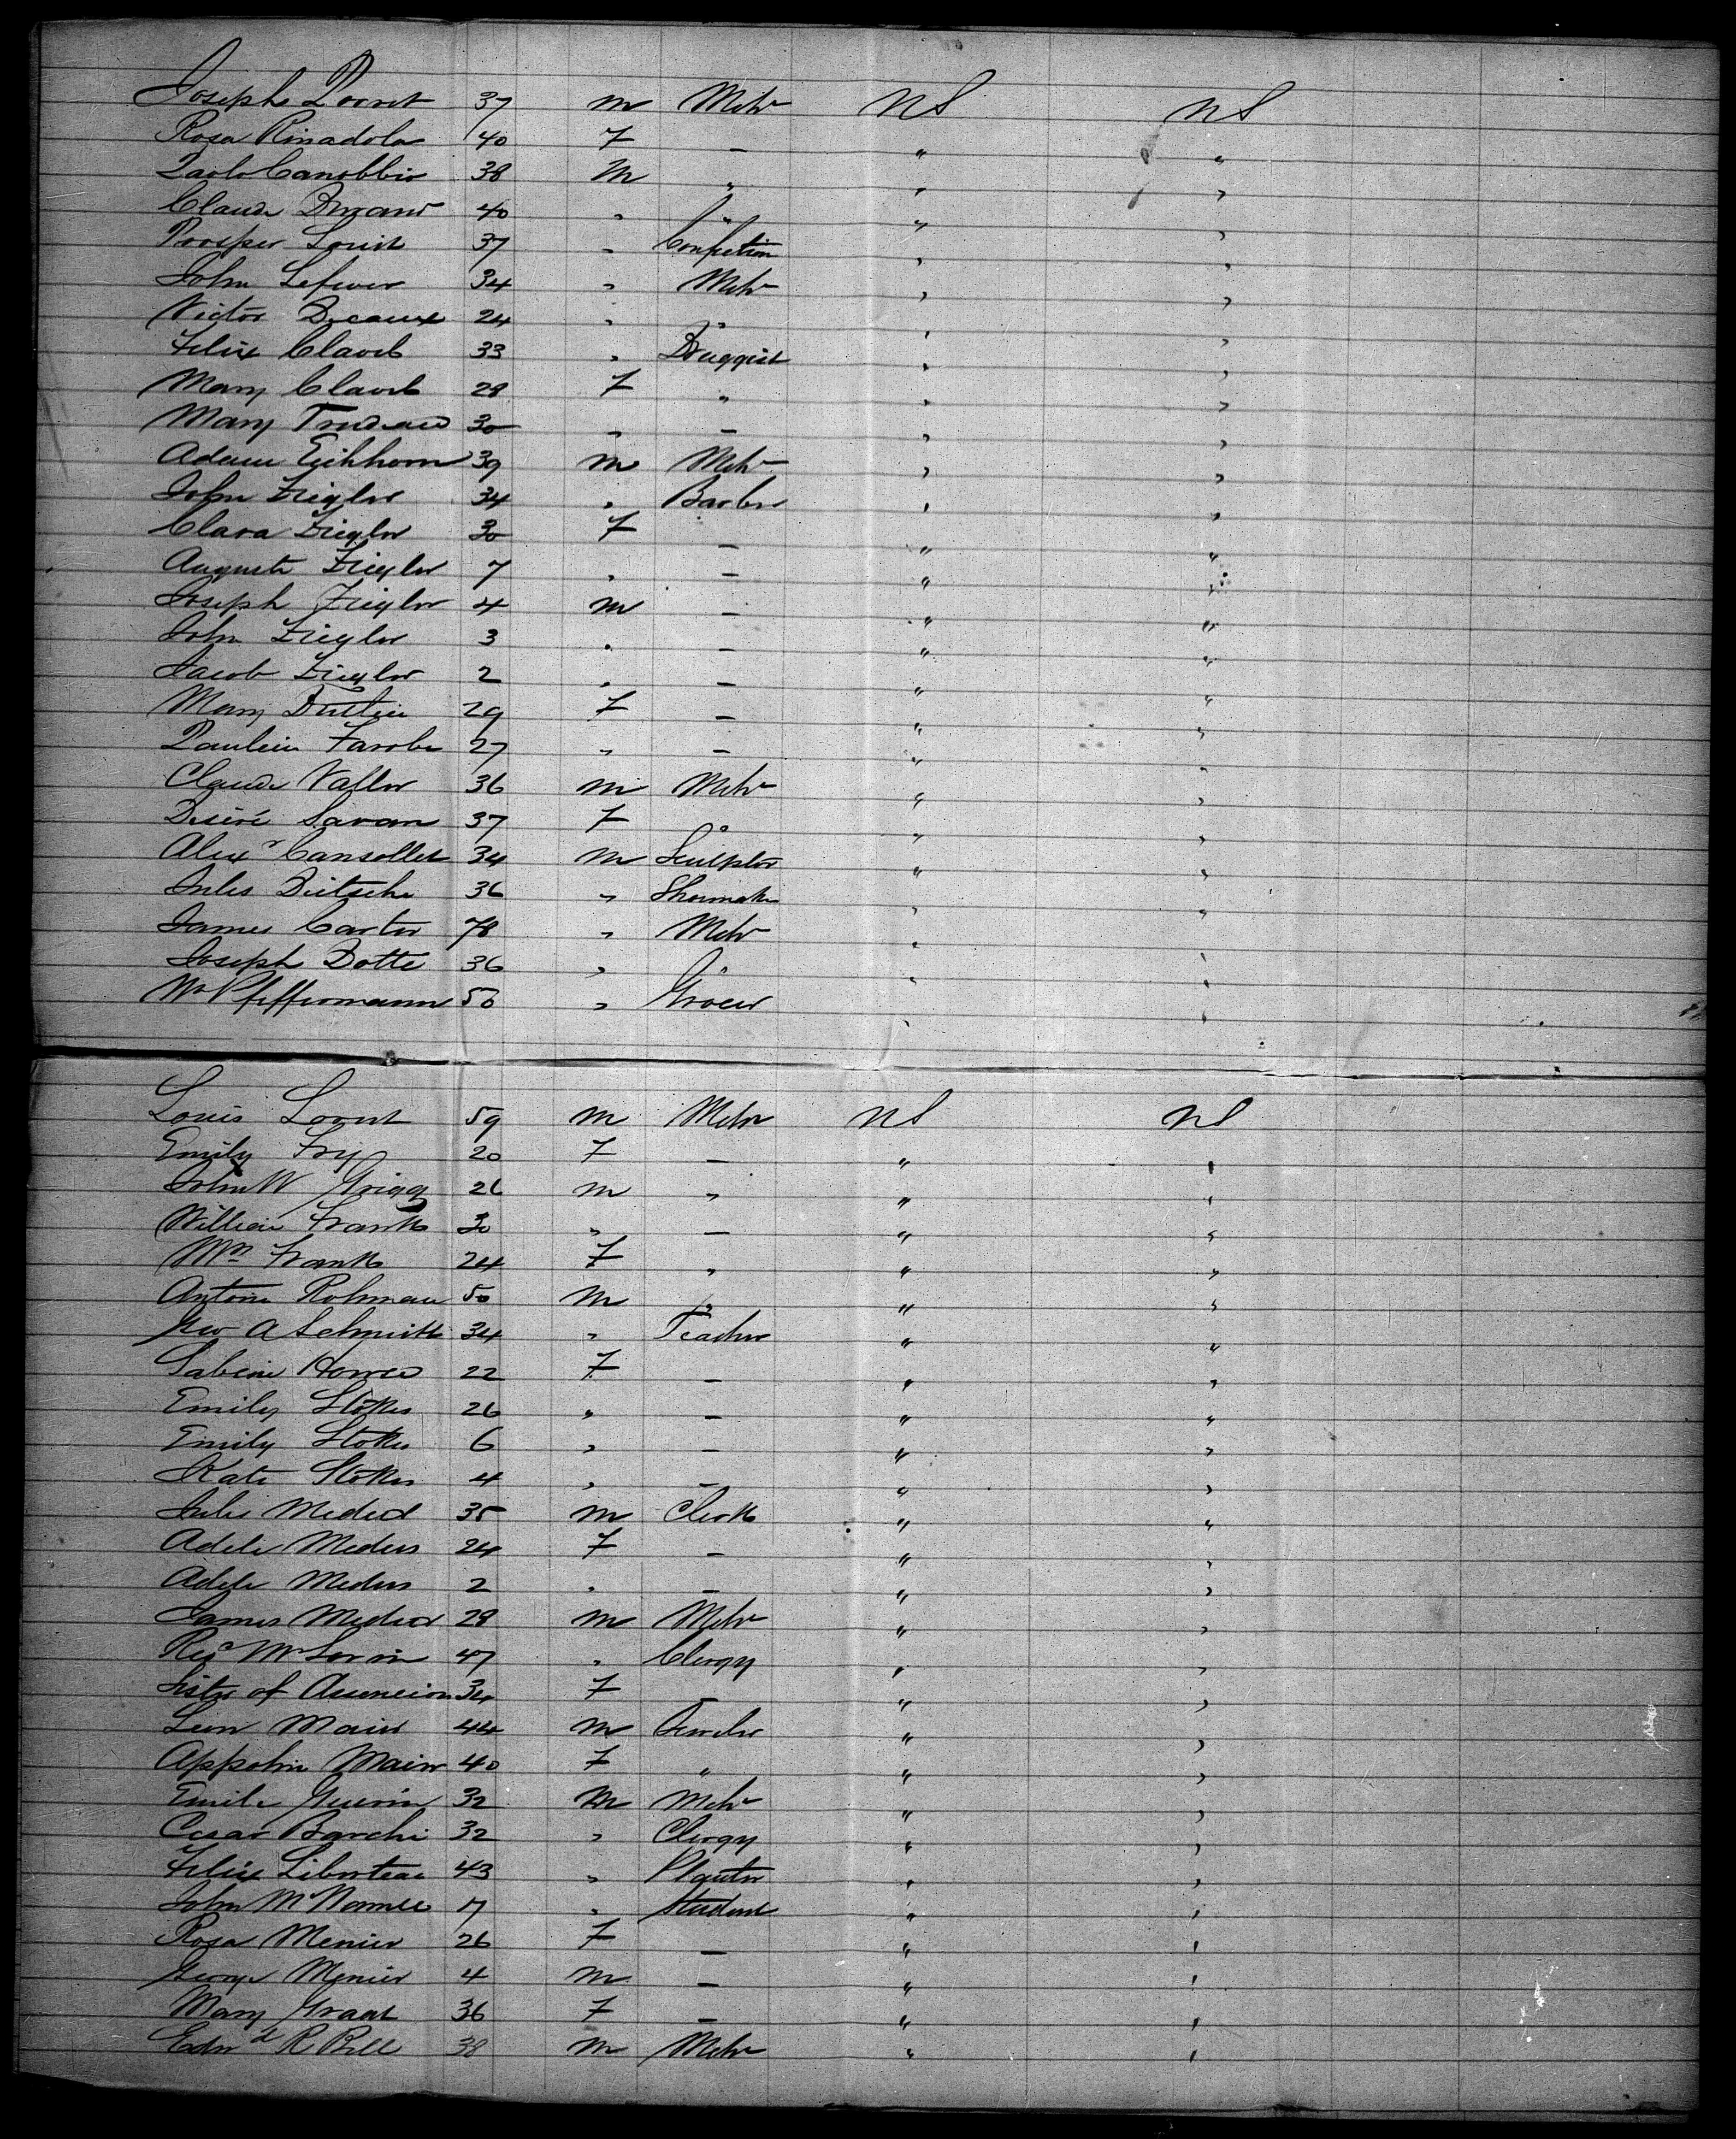 Joseph 37 m Mchr US US
Rosa Rinadola 40 F — " "
Paolo Canobbio 38 m " " "
Claude Durand 40 " " " "
Prosper 37 " Confection " "
John Lefever 34 " Mchr " "
Victor 24 " " " "
Felix Clavel 33 " Druggist " "
Mary Clavel 28 F " " "
Mary Trudeau 30 " — " "
Adam Eichhorn 39 m Mchr " "
John Ziegler 34 " Barber " "
Clara Ziegler 30 F — " "
Auguste Ziegler 7 " — " "
Joseph Ziegler 4 m — " "
John Ziegler 3 " — " "
Jacob Ziegler 2 " — " "
Mary 29 F — " "
27 " — " "
Claude Vallor 36 m Mchr " "
Desiré Savan 37 F " " "
Alexr Cansollet 34 m Sculptor " "
Jules Dietsche 36 " Shoemaker " "
James Carter 78 " Mchr " "
Joseph Dotte 36 " " " "
Wm Pfeffermann 50 " Grocer " "
Louis 59 m Mchr US US
Emily Fry 20 F — " "
John W Grigg 26 m " " "
William Frank 30 " — " "
Mrs Frank 24 F " " "
Antoine Rohman 50 m " " "
Geo A Schmitt 34 " Teacher " "
Sabine 22 F — " "
Emily Stokes 26 " — " "
Emily Stokes 6 " — " "
Kate Stokes 4 " — " "
Jules Meder 35 m Clerk " "
Adele Meder 24 F — " "
Adele Meder 2 " — " "
James Meder 28 m Mchr " "
47 " Clergy " "
Sister of Assencion 34 F " "
Leon Maier 44 m Jeweler " "
Appoline Maier 40 F " " "
Emile Guerin 32 m Mchr " "
Cesar Barchi 32 " Clergy " "
Felix Liborteau 43 " Planter " "
John McNamee 17 " Student " "
Rosa Menier 26 F — " "
George Menier 4 m — " "
Mary Graat 36 F — " "
Edwd R Bell 38 m Mchr " "